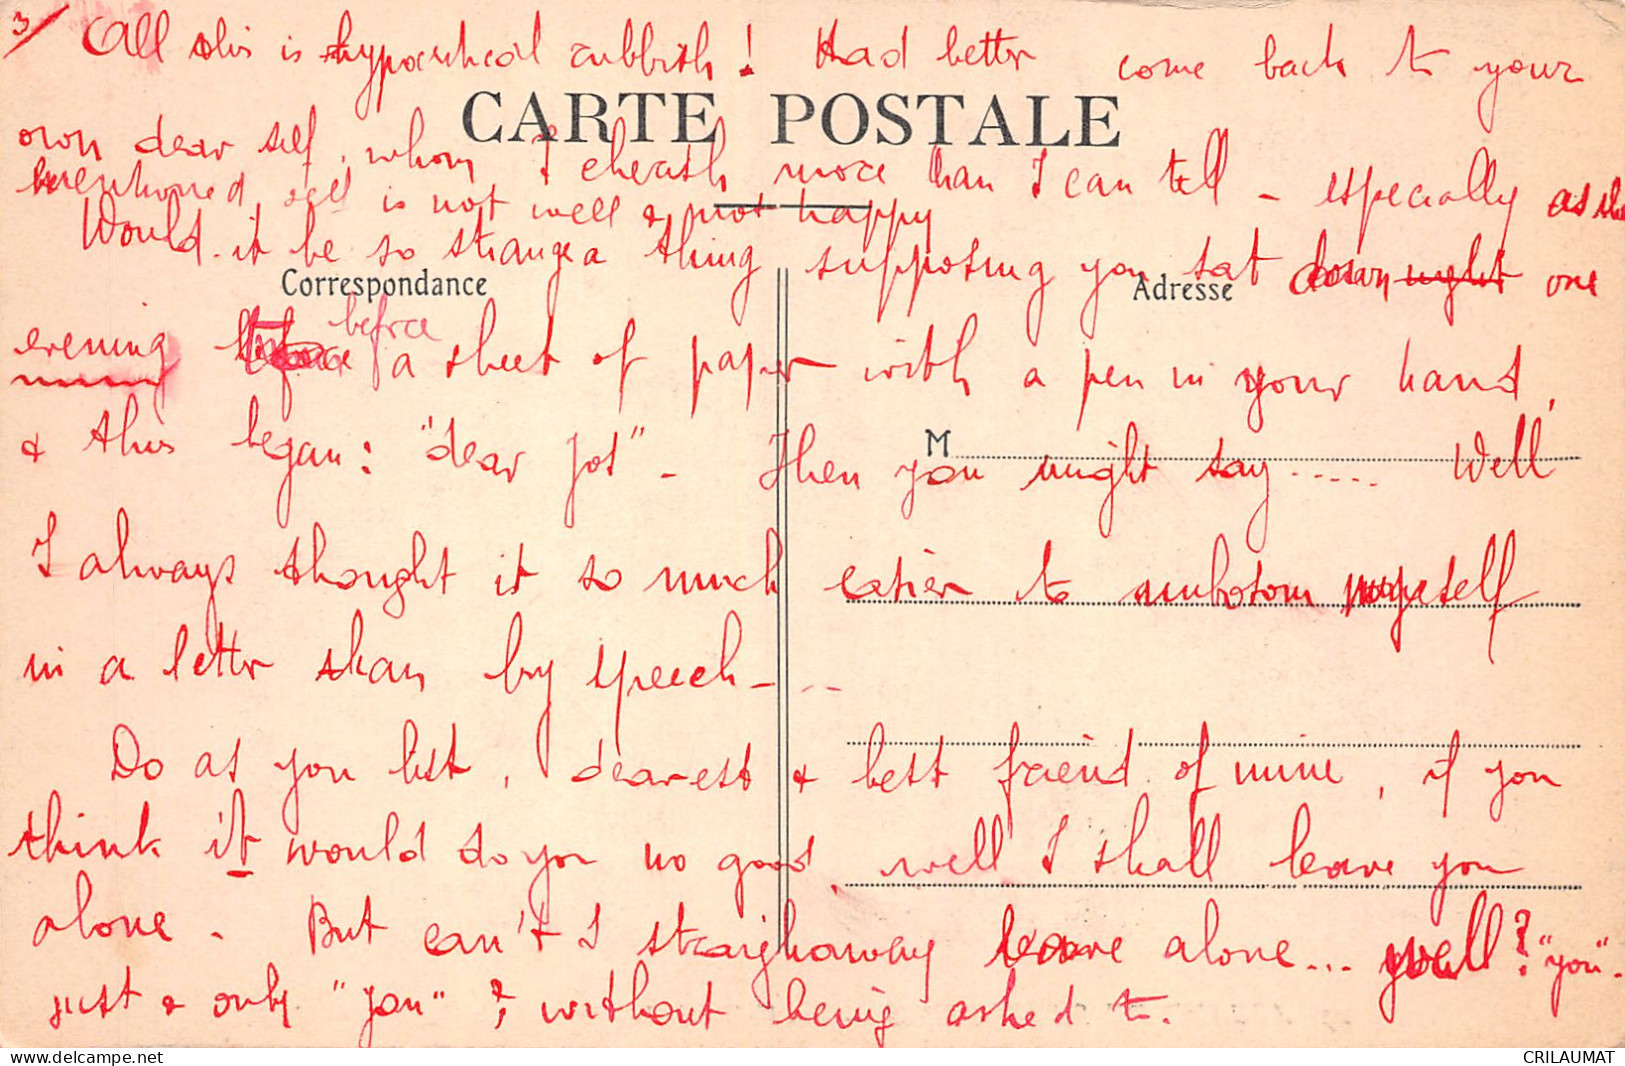 3/ All this is hypocritical rubbish! Had better come back to your
CARTE POSTALE
own dear self, whom I cherish more than I can tell – especially as the
self is not well & not happy
Would it be so strange a thing supposing you sat down might one
Correspondance
Adresse
evening before a sheet of paper with a pen in your hand,
& this began: "dear Jos" – Then you might say ..... Well
M
I always thought it so much easier to unbosom myself
in a letter than by speech – ..
Do as you list, dearest & best friend of mine, if you
think it would do you no good, well I shall leave you
alone. But can't I straighaway leave alone... well? "you".
just & only "you" ? without being asked to.
CRILAUMAT